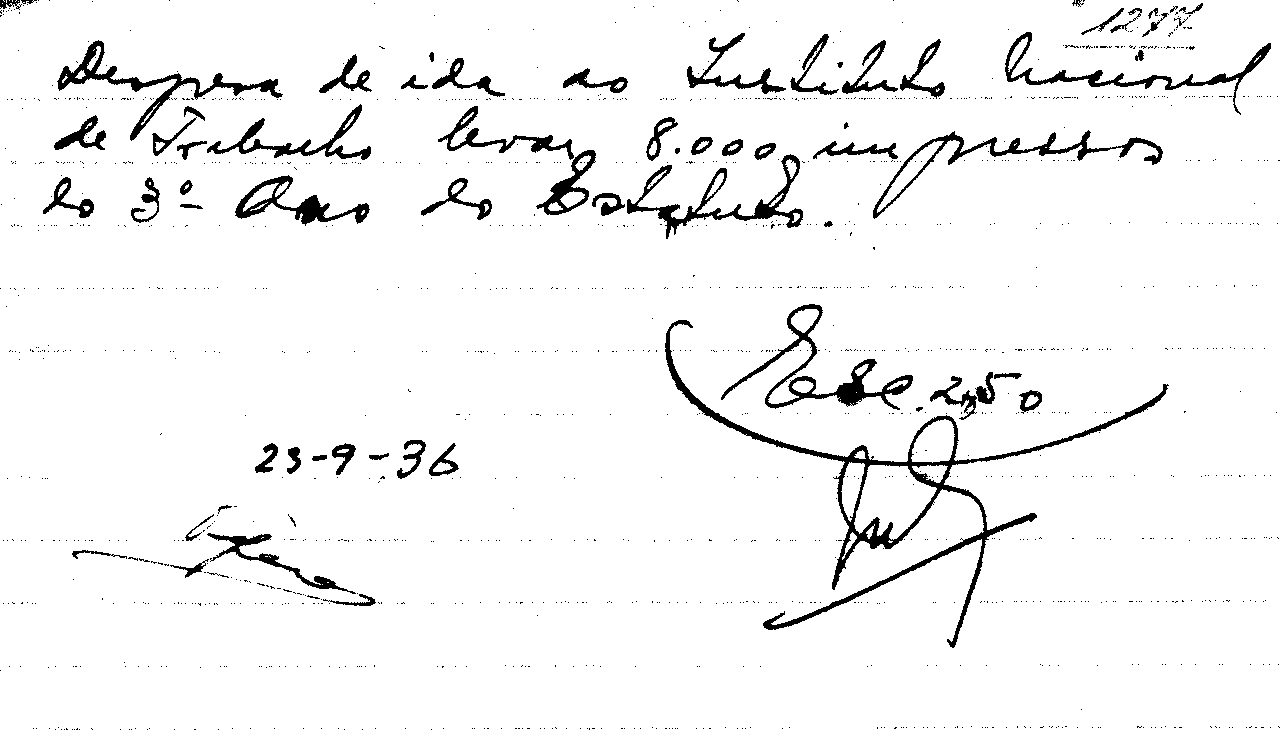 1277
Despesa de ida ao Instituto Nacional
de Trabalho levar 8.000 impressos
do 3º Ano do Estatuto.
Esc. 2,50
23-9-36